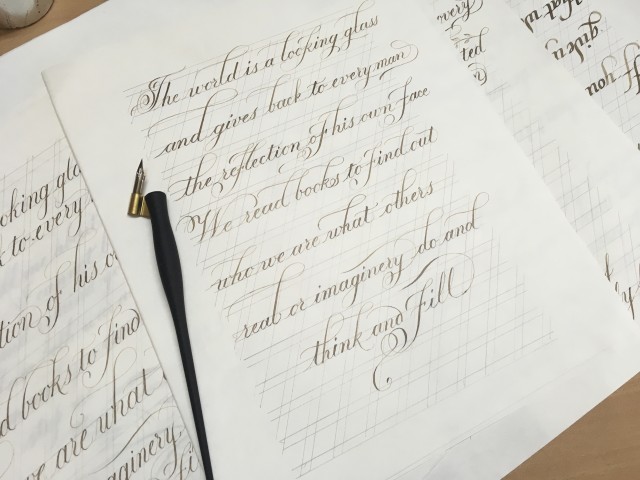 The world is a looking glass
and gives back to every man
the reflection of his own face
We read books to find out
who we are what others
real or imaginery do and
think and Fill
oking gla
to every
tion of his o
d books to find
e are what
aginery
very
ted
what w
given
ff you